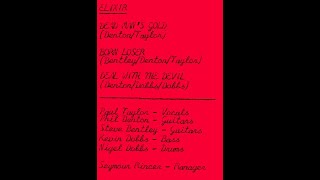 ELIXIR
DEAD MAN'S GOLD
(Denton/Taylor)
BORN LOSER
(Dentley/Denton/Taylor)
DEAL WITH THE DEVIL
(Denton/Dobbs/Dobbs)
Paul Taylor - Vocals
Phil Denton - Guitars
Steve Bentley - Guitars
Kevin Dobbs - Bass
Nigel Dobbs - Drums
Seymour Mincer - Manager